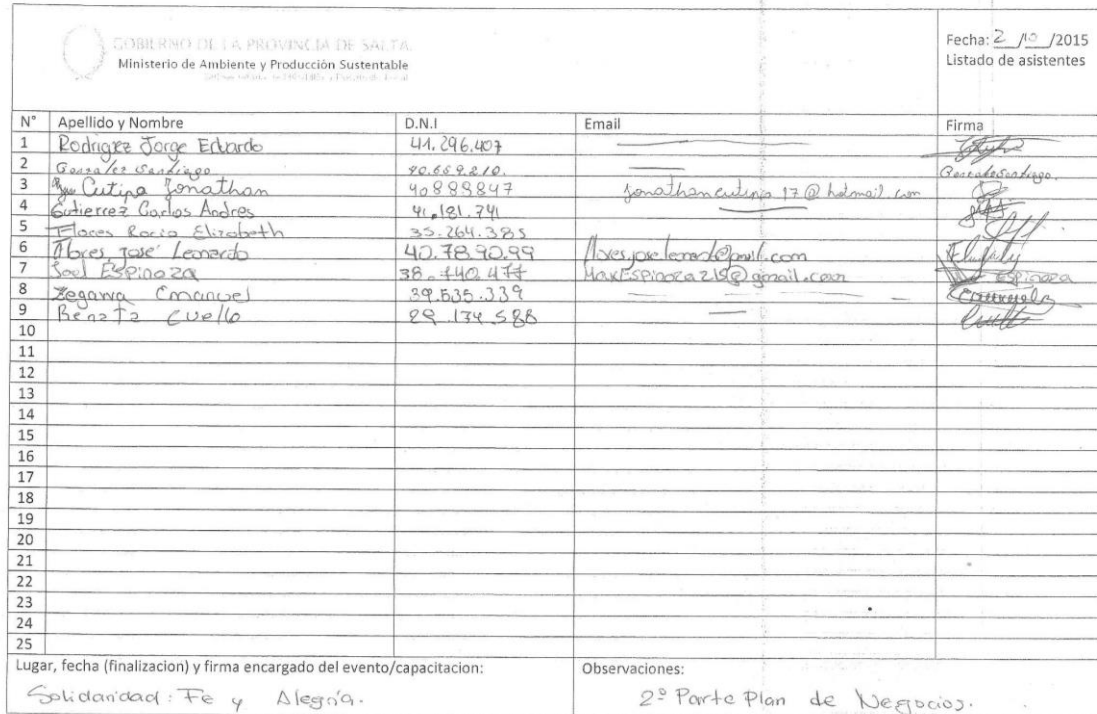 GOBIERNO DE LA PROVINCIA DE SALTA
Ministerio de Ambiente y Producción Sustentable
Fecha: 2 /10 /2015
Listado de asistentes
N° Apellido y Nombre D.N.I Email Firma
1 Rodriguez Jorge Eduardo 41.296.407
2 Gonzalez Santiago 40.659.210. Gonzalo Santiago.
3 Cutipa Jonathan 40888847 Jonathancutipa17@hotmail.com
4 Gutierrez Carlos Andres 41.181.741
5 Flores Rocio Elizabeth 35.264.385
6 Flores, José Leonardo 40.78.90.99
7 Joel ESPinoza 38.740.477 MaxESPinoza215@gmail.com ESPinoza
8 Zegarra Emanuel 39.535.339
9 Renata Cuello 29.134.588
10
11
12
13
14
15
16
17
18
19
20
21
22
23
24
25
Lugar, fecha (finalizacion) y firma encargado del evento/capacitacion: Observaciones:
Solidaridad: Fe y Alegría. 2º Parte Plan de Negocios.